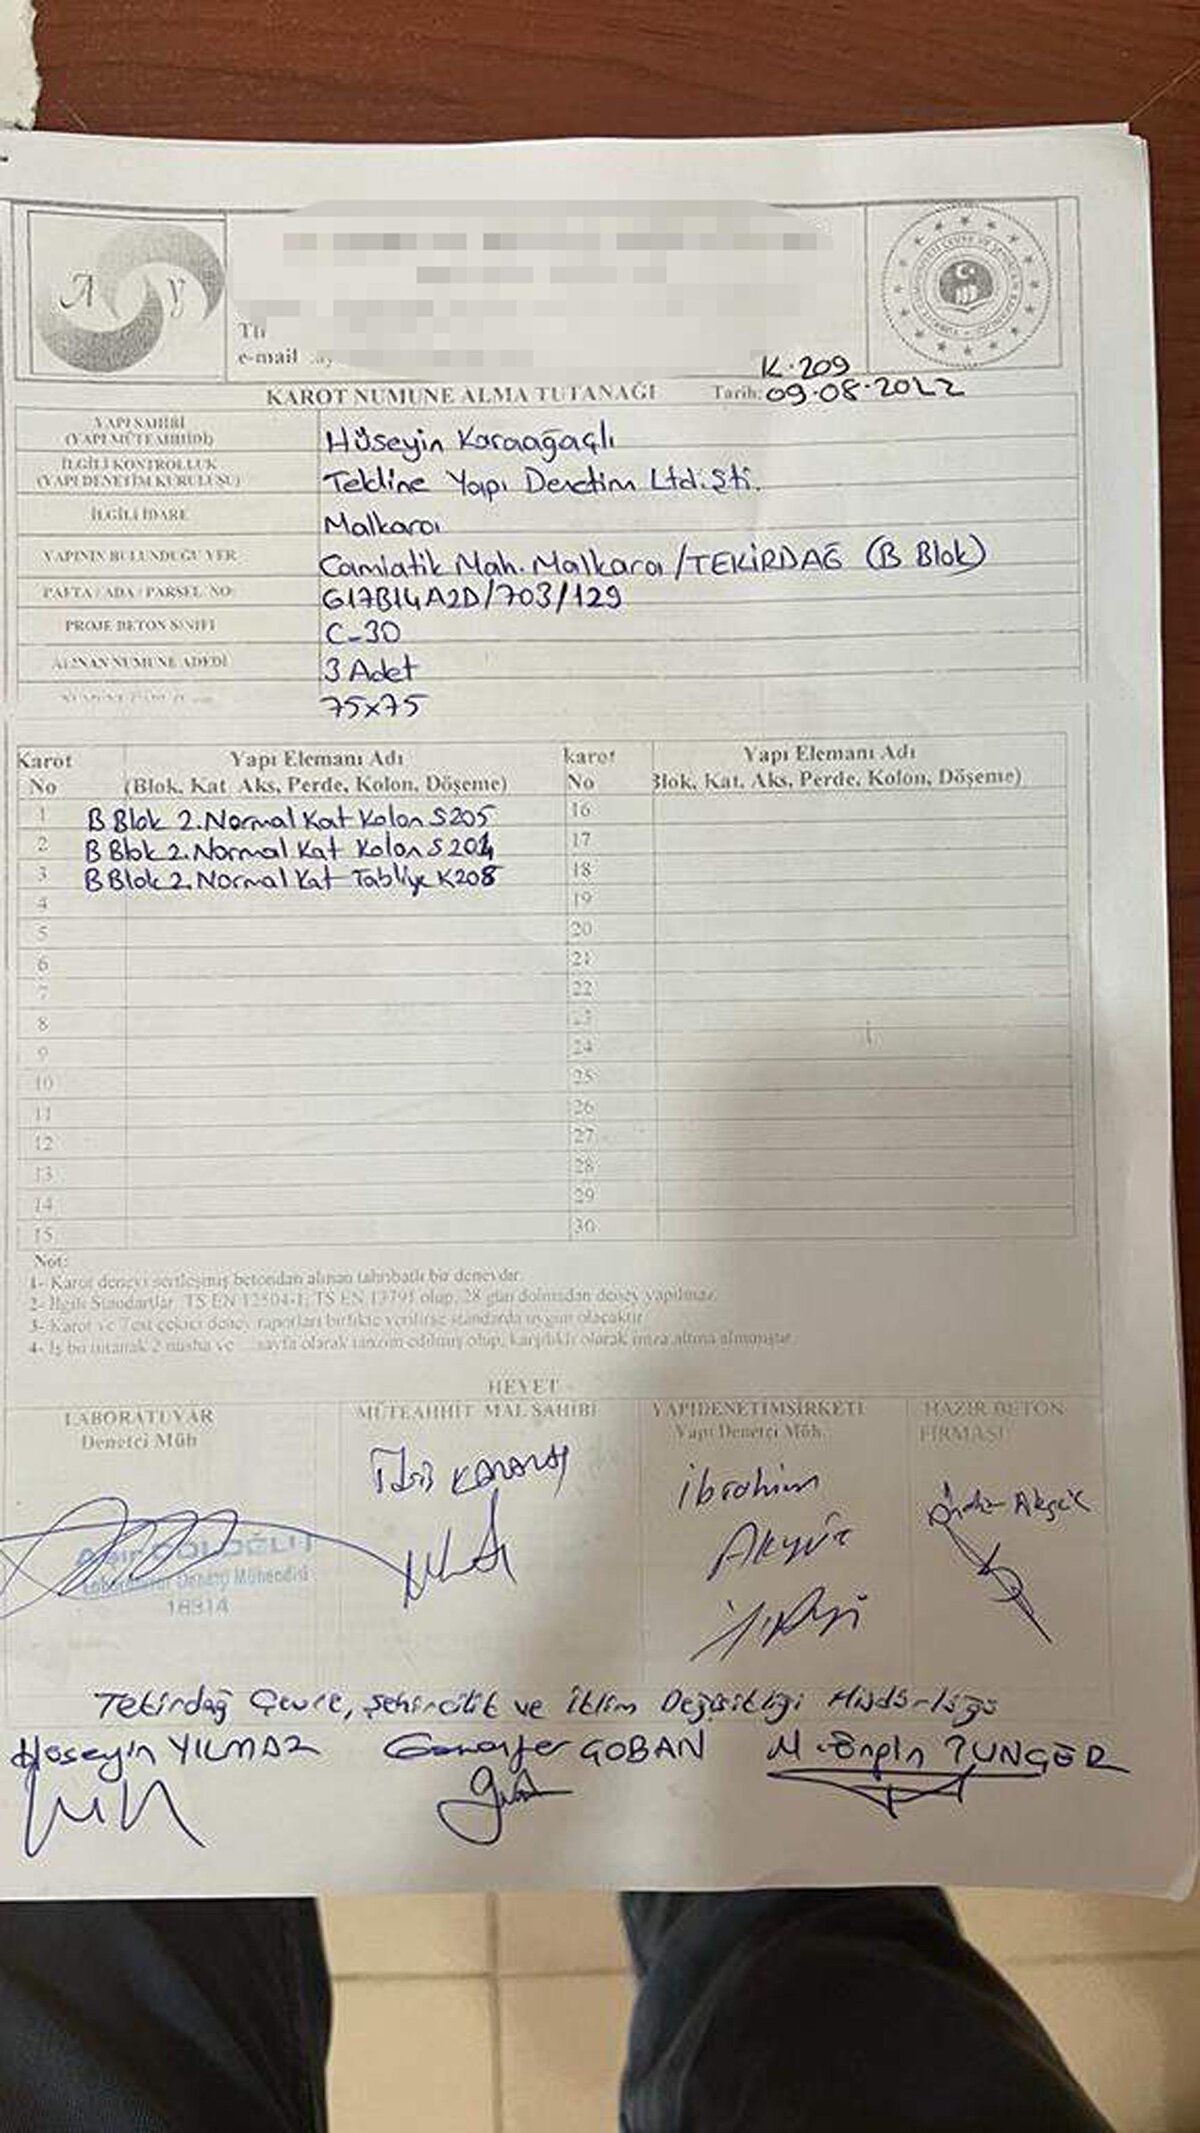 A Y
e-mail
K.209
KAROT NUMUNE ALMA TUTANAĞI Tarih: 09.08.2022
YAPI SAHİBİ
(YAPI MÜTEAHHİDİ) Hüseyin Karaağaçlı
İLGİLİ KONTROLLUK
(YAPI DENETİM KURULUŞU) Tekline Yapı Denetim Ltd.Şti.
İLGİLİ İDARE Malkara
YAPININ BULUNDUĞU YER Camiatik Mah. Malkara /TEKİRDAĞ (B Blok)
PAFTA / ADA / PARSEL NO G17B14A2D/703/129
PROJE BETON SINIFI C-30
ALINAN NUMUNE ADEDİ 3 Adet
75x75
Karot Yapı Elemanı Adı karot Yapı Elemanı Adı
No (Blok, Kat Aks, Perde, Kolon, Döşeme) No Blok, Kat, Aks, Perde, Kolon, Döşeme)
1 B Blok 2.Normal Kat Kolon S205 16
2 B Blok 2.Normal Kat Kolon S204 17
3 B Blok 2.Normal Kat Tabliye K208 18
4 19
5 20
6 21
7 22
8 23
9 24
10 25
11 26
12 27
13 28
14 29
15 30
Not:
1- Karot deneyi sertleşmiş betondan alınan tahribatlı bir deneydir.
2- İlgili Standartlar TS EN 12504-1, TS EN 13791 olup, 28 gün dolmadan deney yapılmaz.
3- Karot ve Test çekici deney raporları birlikte verilirse standarda uygun olacaktır.
4- İş bu tutanak 2 nusha ve ...sayfa olarak tanzim edilmiş olup, karşılıklı olarak imza altına alınmıştır.
HEYET
LABORATUVAR MÜTEAHHİT MAL SAHİBİ YAPIDENETİMŞİRKETİ HAZIR BETON
Denetçi Müh Yapı Denetci Müh. FİRMASI
İbrahim
Akyüz
Laboratuvar Denetçi Mühendisi
16314
Tekirdağ Çevre, Şehircilik ve İklim Değişikliği Müdürlüğü
Hüseyin YILMAZ ÇOBAN M. Engin TUNÇER